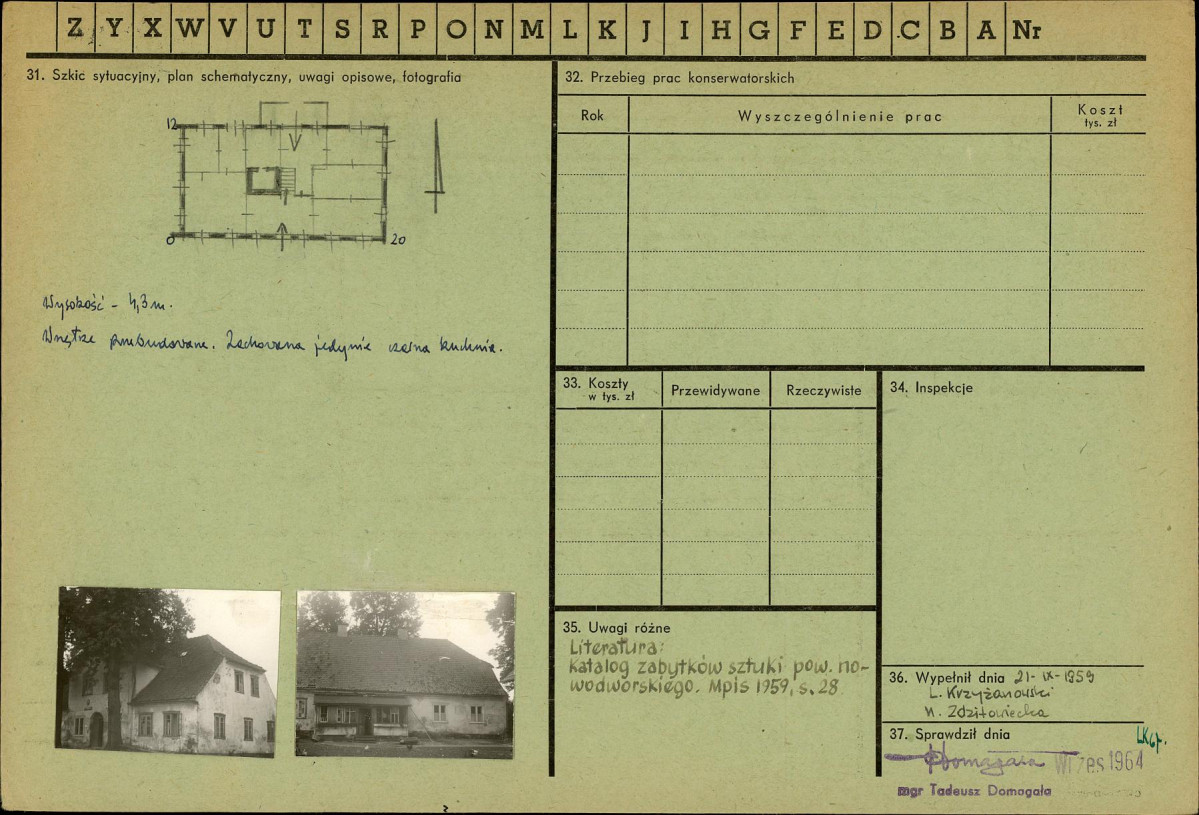 Z Y X W V U T S R P O N M L K J I H G F E D C B A Nr
31. Szkic sytuacyjny, plan schematyczny, uwagi opisowe, fotografia
12
0
20
Wysokość - 4,3 m.
Wnętrze przebudowane. Zachowana jedynie czarna kuchnia.
32. Przebieg prac konserwatorskich
Rok
Wyszczególnienie prac
Koszt
tys. zł
33. Koszty
w tys. zł
Przewidywane
Rzeczywiste
34. Inspekcje
35. Uwagi różne
Literatura:
Katalog zabytków sztuki pow. no-
wodworskiego. Mpis 1959, s. 28
36. Wypełnił dnia 21-IX-1959
L. Krzyżanowski
N. Zdzitowiecka
37. Sprawdził dnia
Domagała Wrzes 1964
mgr Tadeusz Domagała